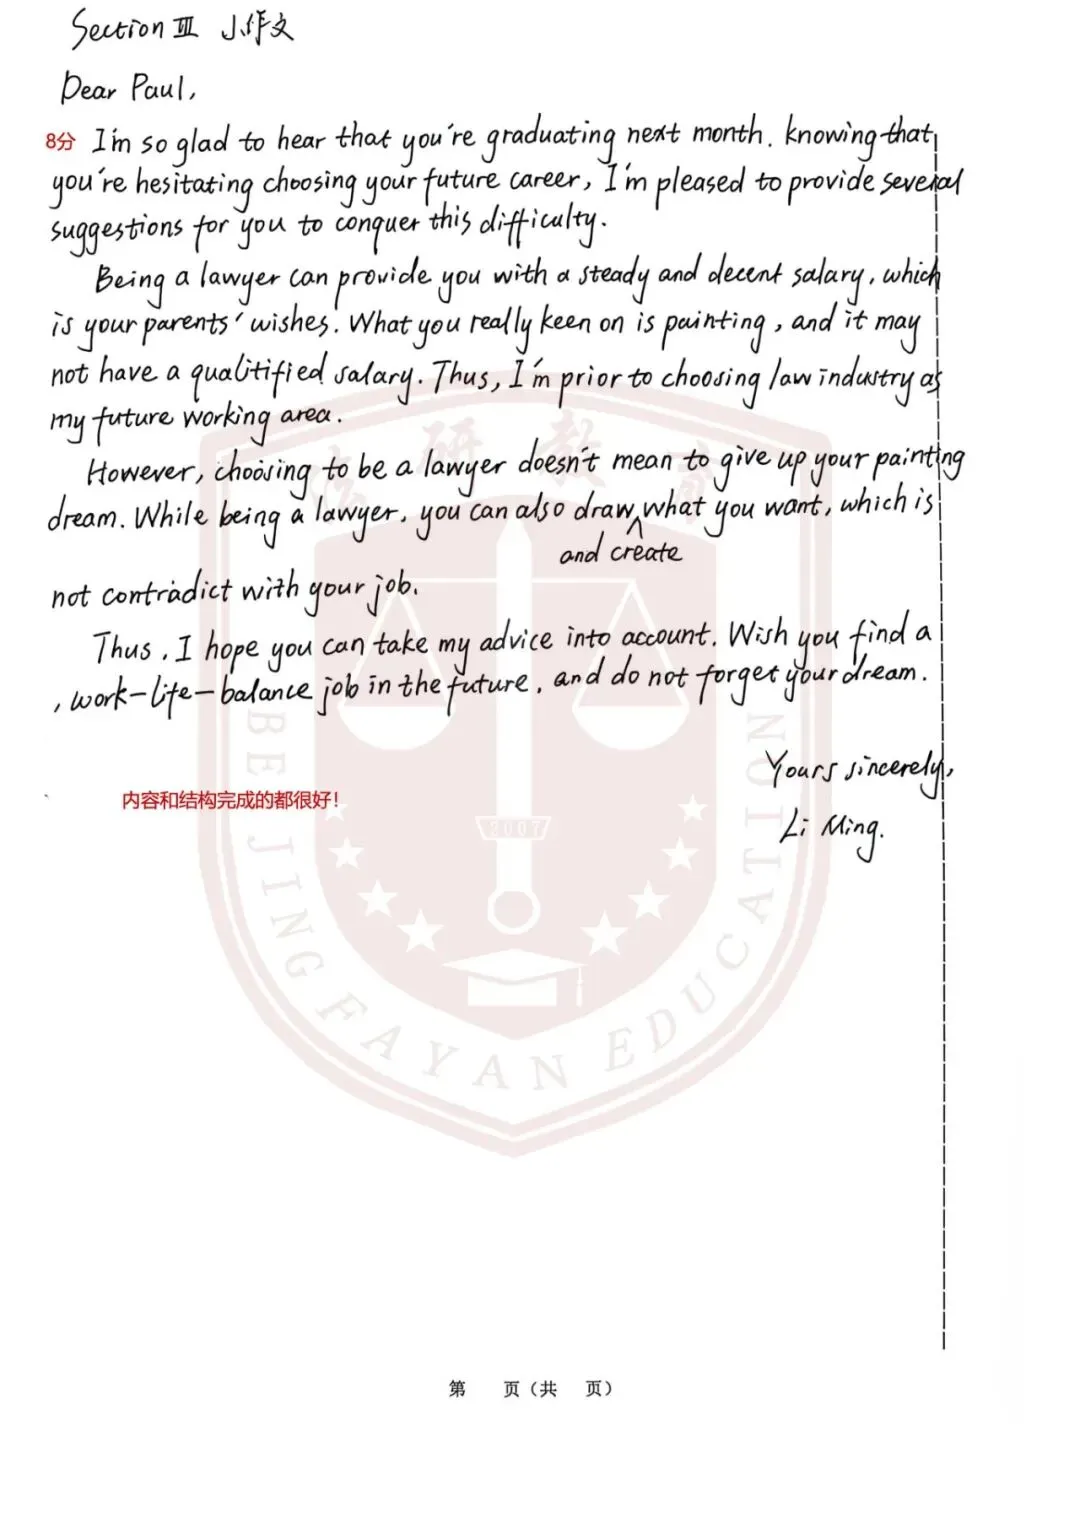 Section III 小作文
Dear Paul,
8分 I'm so glad to hear that you're graduating next month. knowing that
you're hesitating choosing your future career, I'm pleased to provide several
suggestions for you to conquer this difficulty.
Being a lawyer can provide you with a steady and decent salary, which
is your parents' wishes. What you really keen on is painting, and it may
not have a qualitified salary. Thus, I'm prior to choosing law industry as
my future working area.
However, choosing to be a lawyer doesn't mean to give up your painting
dream. While being a lawyer, you can also draw what you want, which is
and create
not contradict with your job.
Thus, I hope you can take my advice into account. Wish you find a
, work-life-balance job in the future, and do not forget your dream.
Yours sincerely,
内容和结构完成的都很好！
Li Ming.
法研教育
2007
BEIJING FAYAN EDUCATION
第 页（共 页）